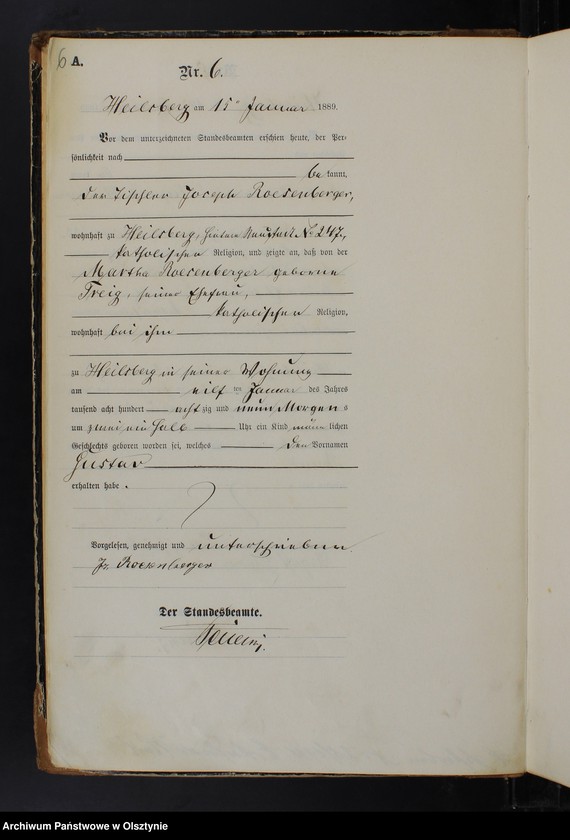 6 A.
Nr. 6.
Heilsberg am 15ten Januar 1889.
Vor dem unterzeichneten Standesbeamten erschien heute, der Per=
sönlichkeit nach
be kannt,
der Tischler Joseph Roesenberger,
wohnhaft zu Heilsberg, hintere Neustadt No 247,
katholischen Religion, und zeigte an, daß von der
Martha Roesenberger geborne
Treig, seiner Ehefrau,
katholischen Religion,
wohnhaft bei ihm
zu Heilsberg in seiner Wohnung
am eilf ten Januar des Jahres
tausend acht hundert acht zig und neun Morgens
um zwei ein halb Uhr ein Kind männ lichen
Geschlechts geboren worden sei, welches den Vornamen
Gustav
erhalten habe.
Vorgelesen, genehmigt und unterschrieben
Js. Roesenberger
Der Standesbeamte.
Archiwum Państwowe w Olsztynie